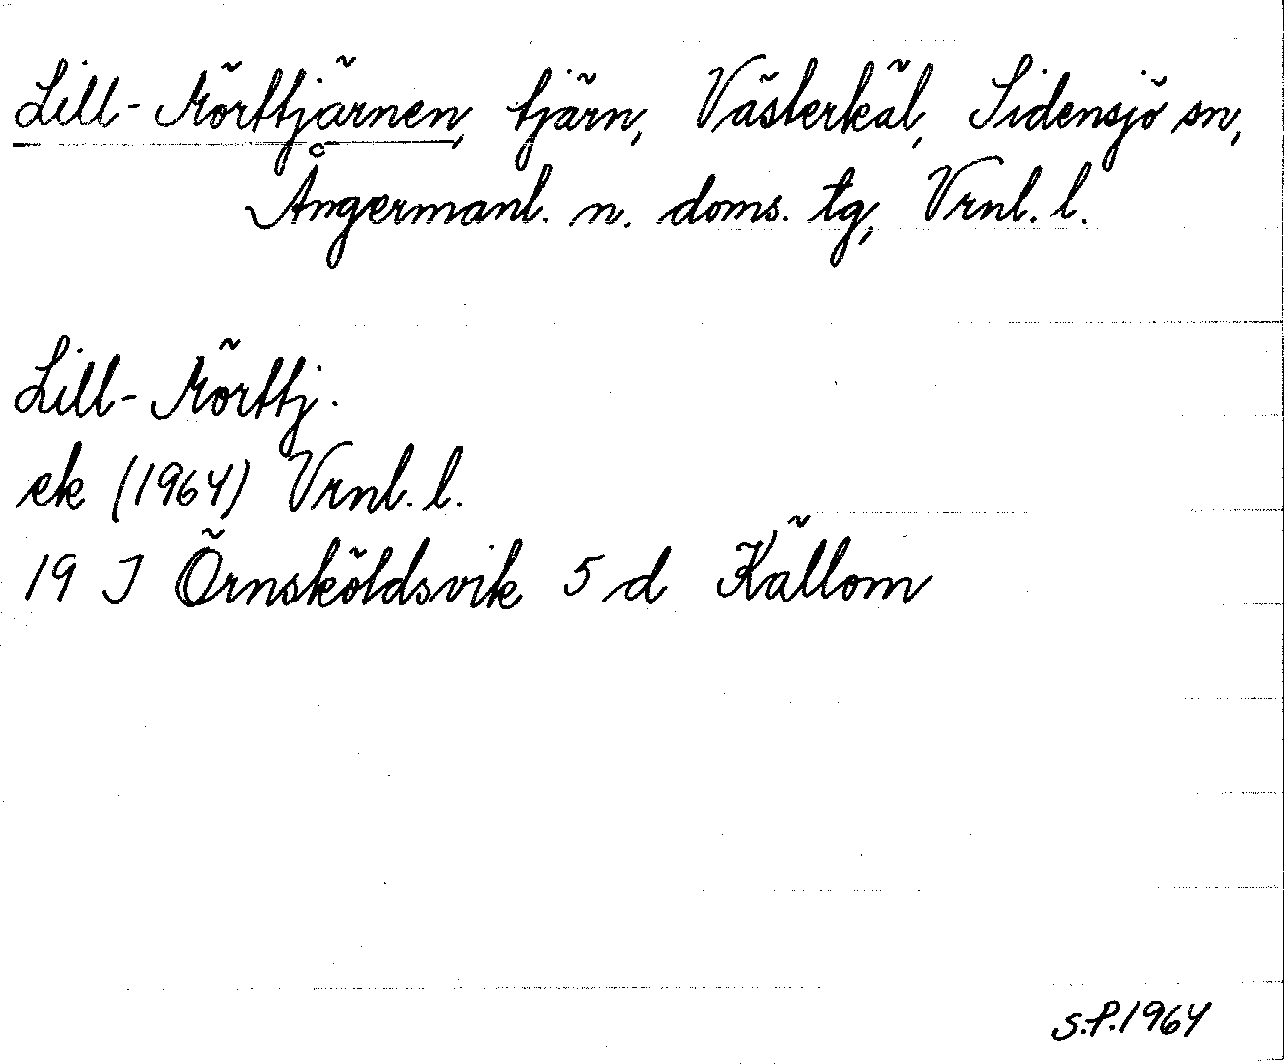 Lill-Mörttjärnen, tjärn, Västerkäl, Sidensjö sn,
Ångermanl. n. doms. tg, Vrnl. l.
Lill-Mörttj.
ek (1964) Vrnl. l.
19 J Örnsköldsvik 5 d Källom
S.P. 1964